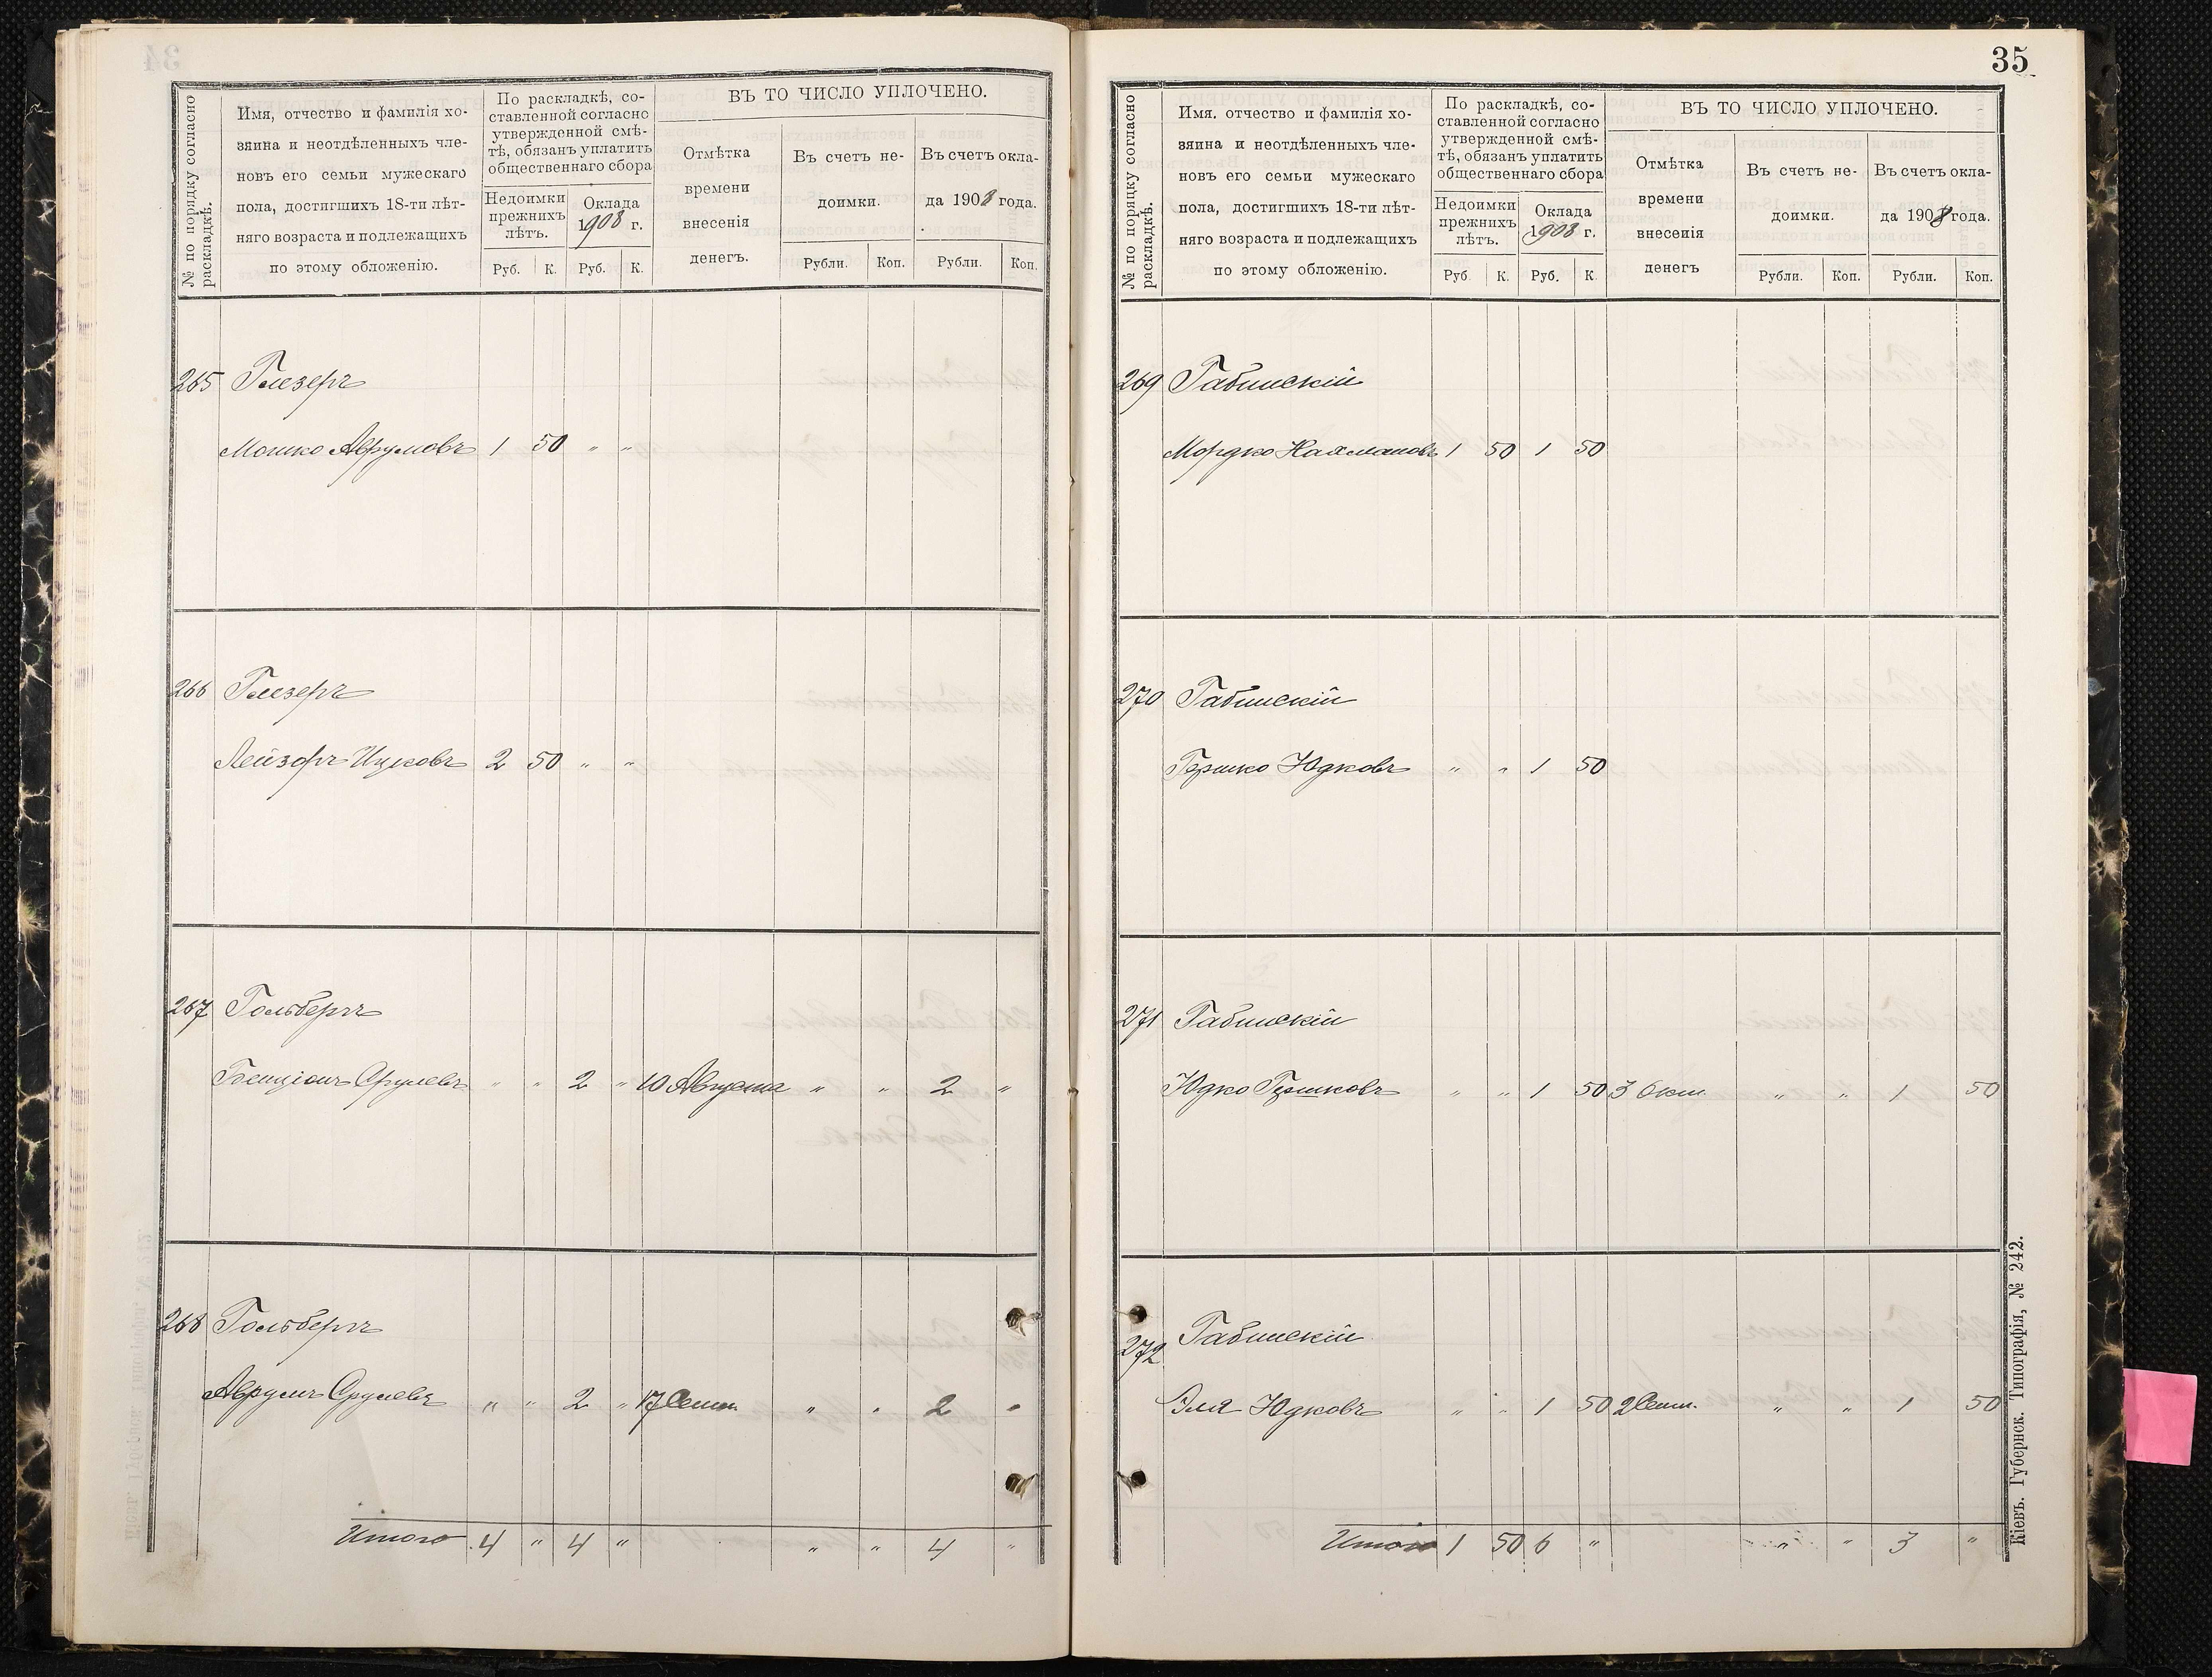 № по порядку согласно раскладкѣ.
Имя, отчество и фамилія хо-
зяина и неотдѣленныхъ чле-
новъ его семьи мужескаго
пола, достигшихъ 18-ти лѣт-
няго возраста и подлежащихъ
по этому обложенію.
По раскладкѣ, со-
ставленной согласно
утвержденной смѣ-
тѣ, обязанъ уплатить
общественнаго сбора
Недоимки
прежнихъ
лѣтъ.
Оклада
1908 г.
Руб. К. Руб. К.
ВЪ ТО ЧИСЛО УПЛОЧЕНО.
Отмѣтка
времени
внесенія
денегъ.
Въ счетъ не-
доимки.
Въ счетъ окла-
да 1908 года.
Рубли. Коп. Рубли. Коп.
265 Глезеръ
Мошко Аврумовъ 1 50 " "
266 Глезеръ
Лейзоръ Ицковъ 2 50 " "
267 Гольбергъ
Бенціонъ Срулевъ " " 2 " 10 Августа " " 2 "
268 Гольбергъ
Аврумъ Срулевъ " " 2 " 17 Сент. " " 2 "
Итого 4 " 4 " " " 4 "
35
№ по порядку согласно раскладкѣ.
Имя, отчество и фамилія хо-
зяина и неотдѣленныхъ чле-
новъ его семьи мужескаго
пола, достигшихъ 18-ти лѣт-
няго возраста и подлежащихъ
по этому обложенію.
По раскладкѣ, со-
ставленной согласно
утвержденной смѣ-
тѣ, обязанъ уплатить
общественнаго сбора
Недоимки
прежнихъ
лѣтъ.
Оклада
1908 г.
Руб К. Руб. К.
ВЪ ТО ЧИСЛО УПЛОЧЕНО.
Отмѣтка
времени
внесенія
денегъ
Въ счетъ не-
доимки.
Въ счетъ окла-
да 1908 года.
Рубли. Коп. Рубли. Коп.
269 Габинскій
Мордко Нахмановъ 1 50 1 50
270 Габинскій
Гершко Юдковъ " " 1 50
271 Габинскій
Юдко Гершковъ " " 1 50 3 Окт. " " 1 50
272 Габинскій
Эля Юдковъ " " 1 50 2 Сент. " " 1 50
Итого 1 50 6 " " " 3 "
Кіевъ. Губернск. Типографія, № 242.